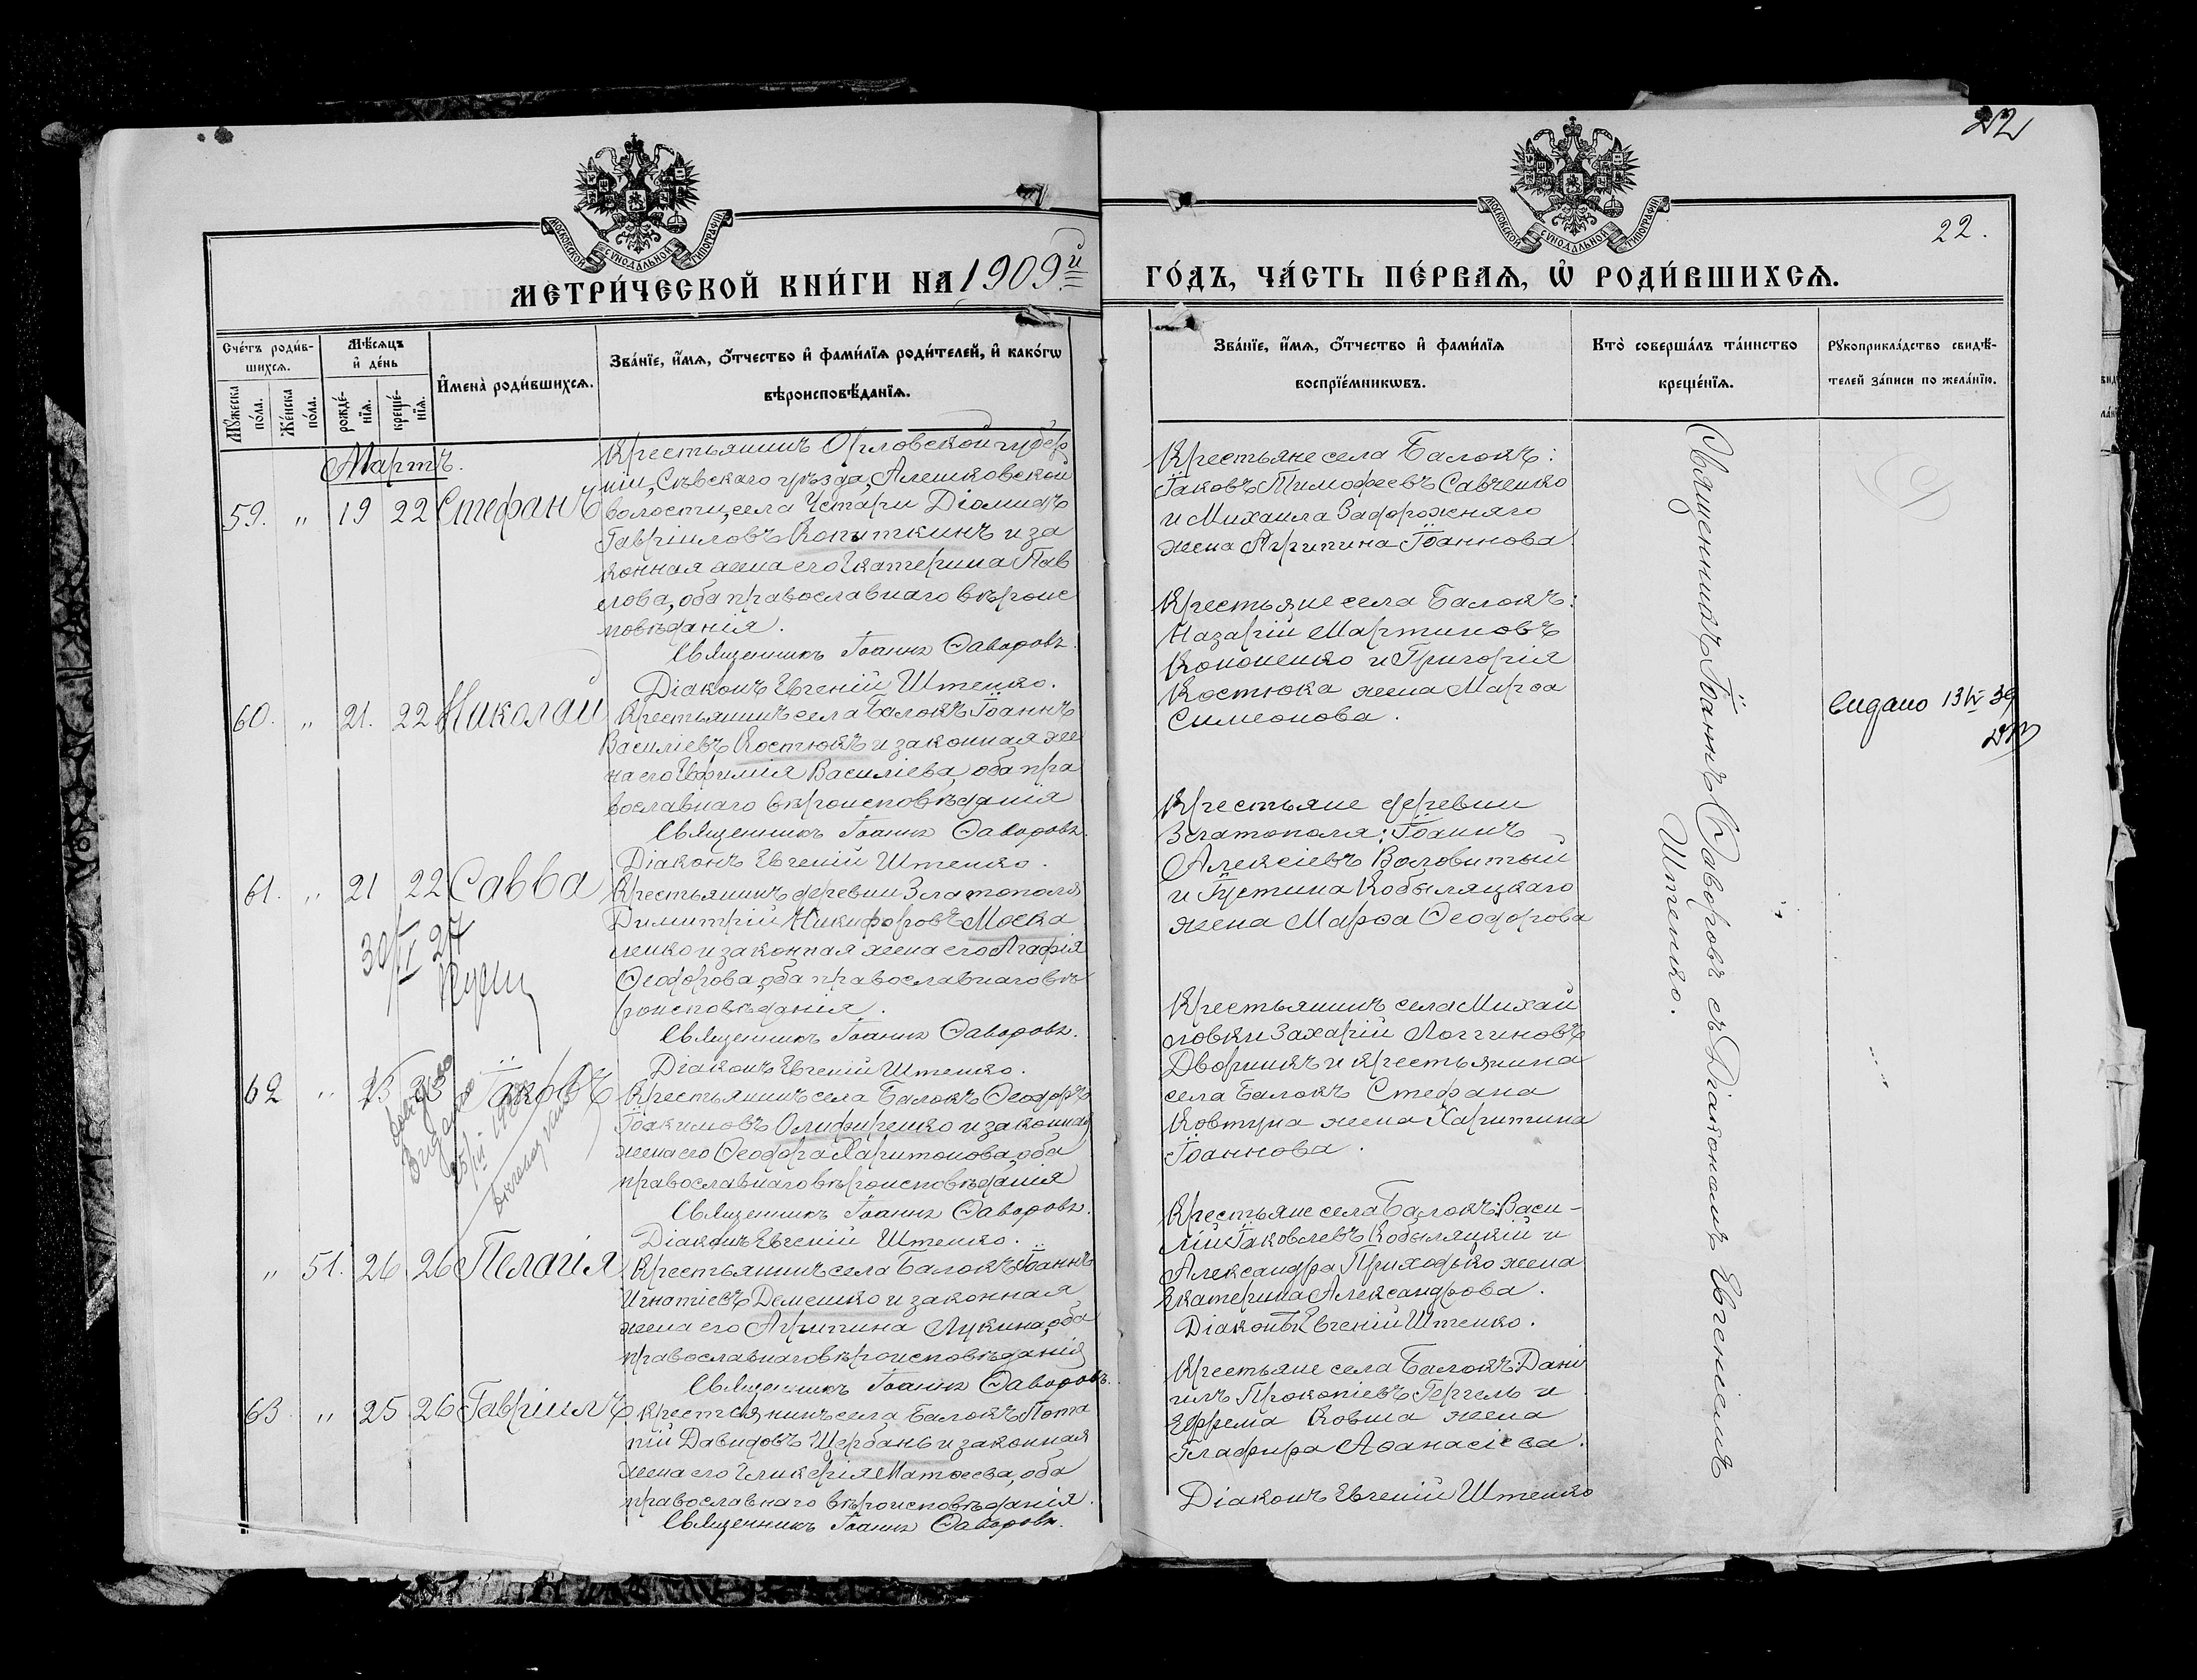 22
МОСКОВСКОЙ СУНОДАЛЬНОЙ ТИПОГРАФІИ
МОСКОВСКОЙ СУНОДАЛЬНОЙ ТИПОГРАФІИ
22.
МЕТРИ́ЧЕСКОЙ КНИ́ГИ НА 1909й
ГО́ДЪ, ЧА́СТЬ ПЕ́РВАѦ, Ѡ҆ РОДИ́ВШИХСѦ.
Счéтъ роди́в-
шихсѧ.
Мꙋ́жеска по́ла.
Жéнска по́ла.
Мѣ́сѧцъ
и҆ дéнь
рождé-
нїѧ.
крещé-
нїѧ.
И҆менà роди́вшихсѧ.
Звáнїе, и҆́мѧ, ѻ҆́тчество и҆ фами́лїѧ роди́телей, и҆ како́гѡ
вѣроисповѣ́данїѧ.
Звáнїе, и҆́мѧ, ѻ҆́тчество и҆ фами́лїѧ
воспрїéмникѡвъ.
Кто̀ совершáлъ тáинство
крещéнїѧ.
Рꙋкоприклáдство свидѣ́-
телей зáписи по желáнїю.
Мартъ.
59. „ 19 22 Стефанъ
Крестьянинъ Орловской губер
ніи, Сѣвскаго уѣзда, Алешковской
волости, села Устари Діомидъ
Гавріиловъ Копыткинъ и за
конная жена его Екатерина Пав
лова, оба православнаго вѣроис
повѣданія.
Священникъ Іоаннъ Ѳаворовъ.
Діаконъ Евгеній Штепко.
Крестьяне села Балокъ:
Іаковъ Тимофеевъ Савченко
и Михаила Задорожняго
жена Агрипина Іоаннова
60. „ 21. 22 Николай
Крестьянинъ села Балокъ Іоаннъ
Василіевъ Костюкъ и законная же
на его Евфимія Василіева, оба пра
вославнаго вѣроисповѣданія
Священникъ Іоаннъ Ѳаворовъ.
Діаконъ Евгеній Штепко.
Крестьяне села Балокъ:
Назарій Мартиновъ
Кононенко и Григорія
Костюка жена Марѳа
Симеонова.
видано 13 IV 39
61. „ 21 22 Савва
Крестьянинъ деревни Златополя
Димитрій Никифоровъ Моска
ленко и законная жена его Агафія
Ѳеодорова, оба православнаго вѣ
роисповѣданія.
Священникъ Іоаннъ Ѳаворовъ.
Діаконъ Евгеній Штепко.
Крестьяне деревни
Златополя: Іоаннъ
Алексіевъ Воловитый
и Іустина Кобыляцкаго
жена Марѳа Ѳеодорова
62 „ 23 23 Іаковъ
Крестьянинъ села Балокъ Ѳеодоръ
Іоакимовъ Олифиренко и законная
жена его Ѳеодора Харитонова, оба
православнаго вѣроисповѣданія
Священникъ Іоаннъ Ѳаворовъ.
Діаконъ Евгеній Штепко.
Крестьянинъ села Михай
ловки Захарій Логгиновъ
Дворникъ и крестьянина
села Балокъ Стефана
Ковтуна жена Харитина
Іоаннова.
„ 51. 26 26 Пелагія
Крестьянинъ села Балокъ Іоаннъ
Игнатіевъ Демешко и законная
жена его Агрипина Лукина, оба
православнаго вѣроисповѣданія
Священникъ Іоаннъ Ѳаворовъ.
Крестьяне села Балокъ: Васи-
лій Іаковлевъ Кобыляцкій и
Александра Приходько жена
Екатерина Александрова.
Діаконъ Евгеній Штепко.
63. „ 25 26 Гавріилъ
Крестьянинъ села Балокъ Пота
пій Давидовъ Щербань и законная
жена его Гликерія Матѳеева, оба
православнаго вѣроисповѣданія.
Священникъ Іоаннъ Ѳаворовъ.
Крестьяне села Балокъ Дані
илъ Прокопіевъ Гергель и
Ефрема Ковша жена
Глафира Аѳанасіева.
Діаконъ Евгеній Штепко
Священникъ Іоаннъ Ѳаворовъ съ Діакономъ Евгеніемъ
Штепко.